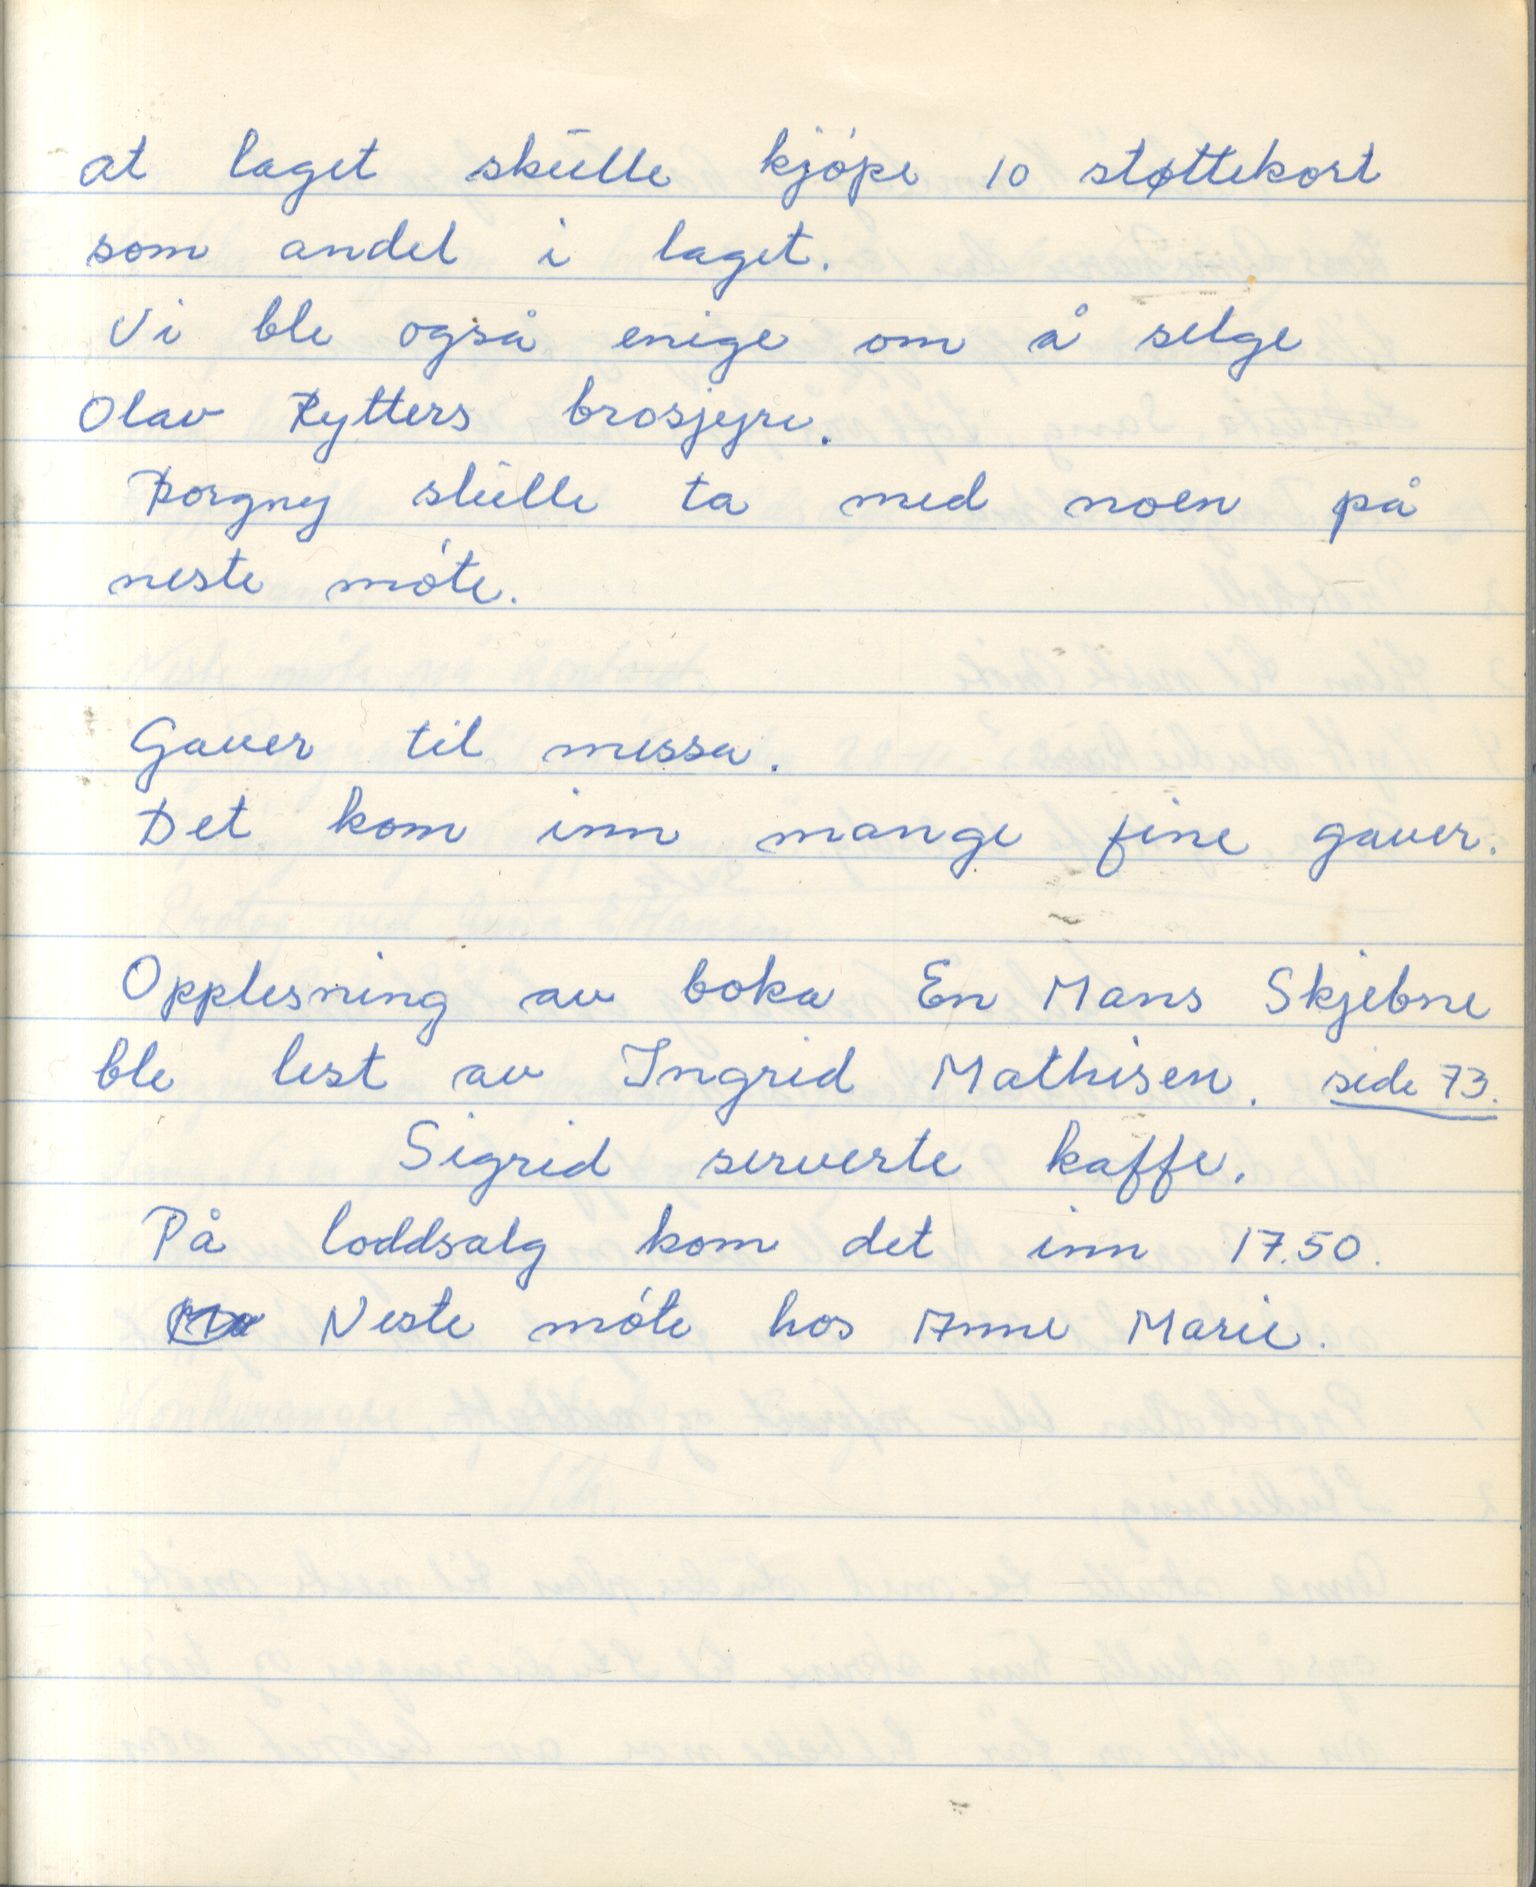 at laget skulle kjøpe 10 støttekort
som andel i laget.
Vi ble også enige om å selge
Olav Rytters brosjyre.
Borgny skulle ta med noen på
neste møte.
Gaver til messa.
Det kom inn mange fine gaver.
Opplesning av boka En Mans Skjebne
ble lest av Ingrid Mathisen. side 73.
Sigrid serverte kaffe.
På loddsalg kom det inn 17.50.
Neste møte hos Anne Marie.